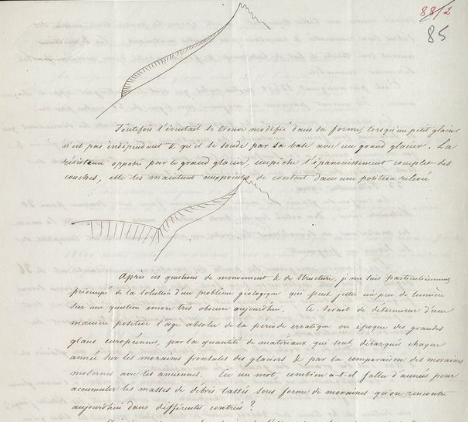 88/2
85
Toutefois l'éventail se trouve modifié dans sa forme, lorsqu'un petit glacier
n'est pas indépendant & qu'il se soude par sa base avec un grand glacier. La
résistance opposée par le grand glacier, empêche l'épanouissement complet des
couches, elle les maintient aux points de contact dans une position relevée
Après ces questions de mouvement & de structure, je me suis particulièrement
préoccupé de la solution d'un problème géologique qui peut jeter un peu de lumière
sur une question encore très obscure aujourd'hui. Ce serait de déterminer d'une
manière positive l'âge absolu de la période erratique ou époque des grandes
glaces européennes, par la quantité de matériaux que sont débarqués chaque
année sur les moraines frontales des glaciers & par la comparaison des moraines
modernes avec les anciennes. En un mot, combien a-t-il fallu d'années pour
accumuler les masses de débris tassés sous forme de moraines qu'on rencontre
aujourd'hui dans différentes contrées ?